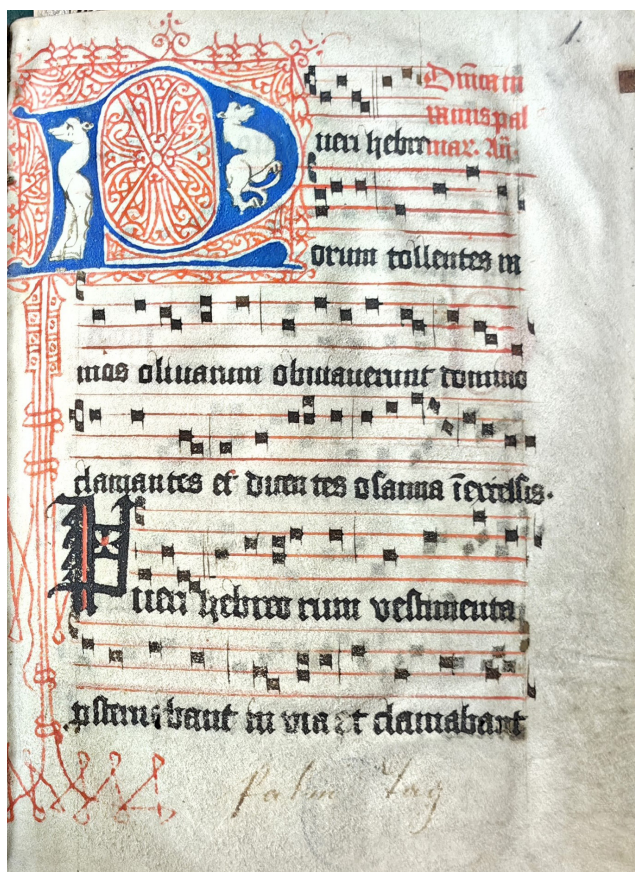 1.
Dn̄ica in
ramis pal
Pueri hebre mar. An̄.
orum tollentes ra
mos oliuarum obuiauerunt domino
clamantes et dicentes osanna ī excelsis.
Pueri hebreo rum vestimenta
psterne bant in via et clamabant
Palm Tag